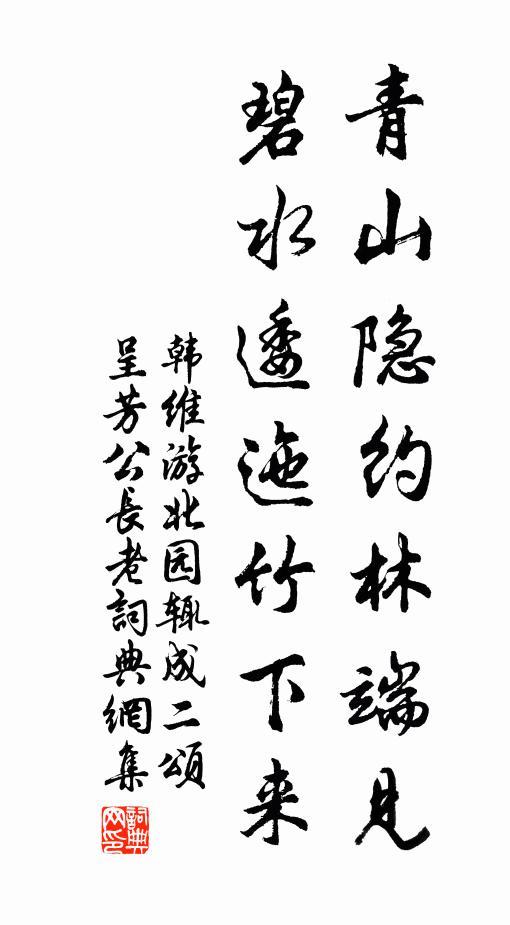 青山隐约林端见
碧水逶迤竹下来
韩维游北园辄成二頌
呈芳公長老詞典網集
詞典
网印